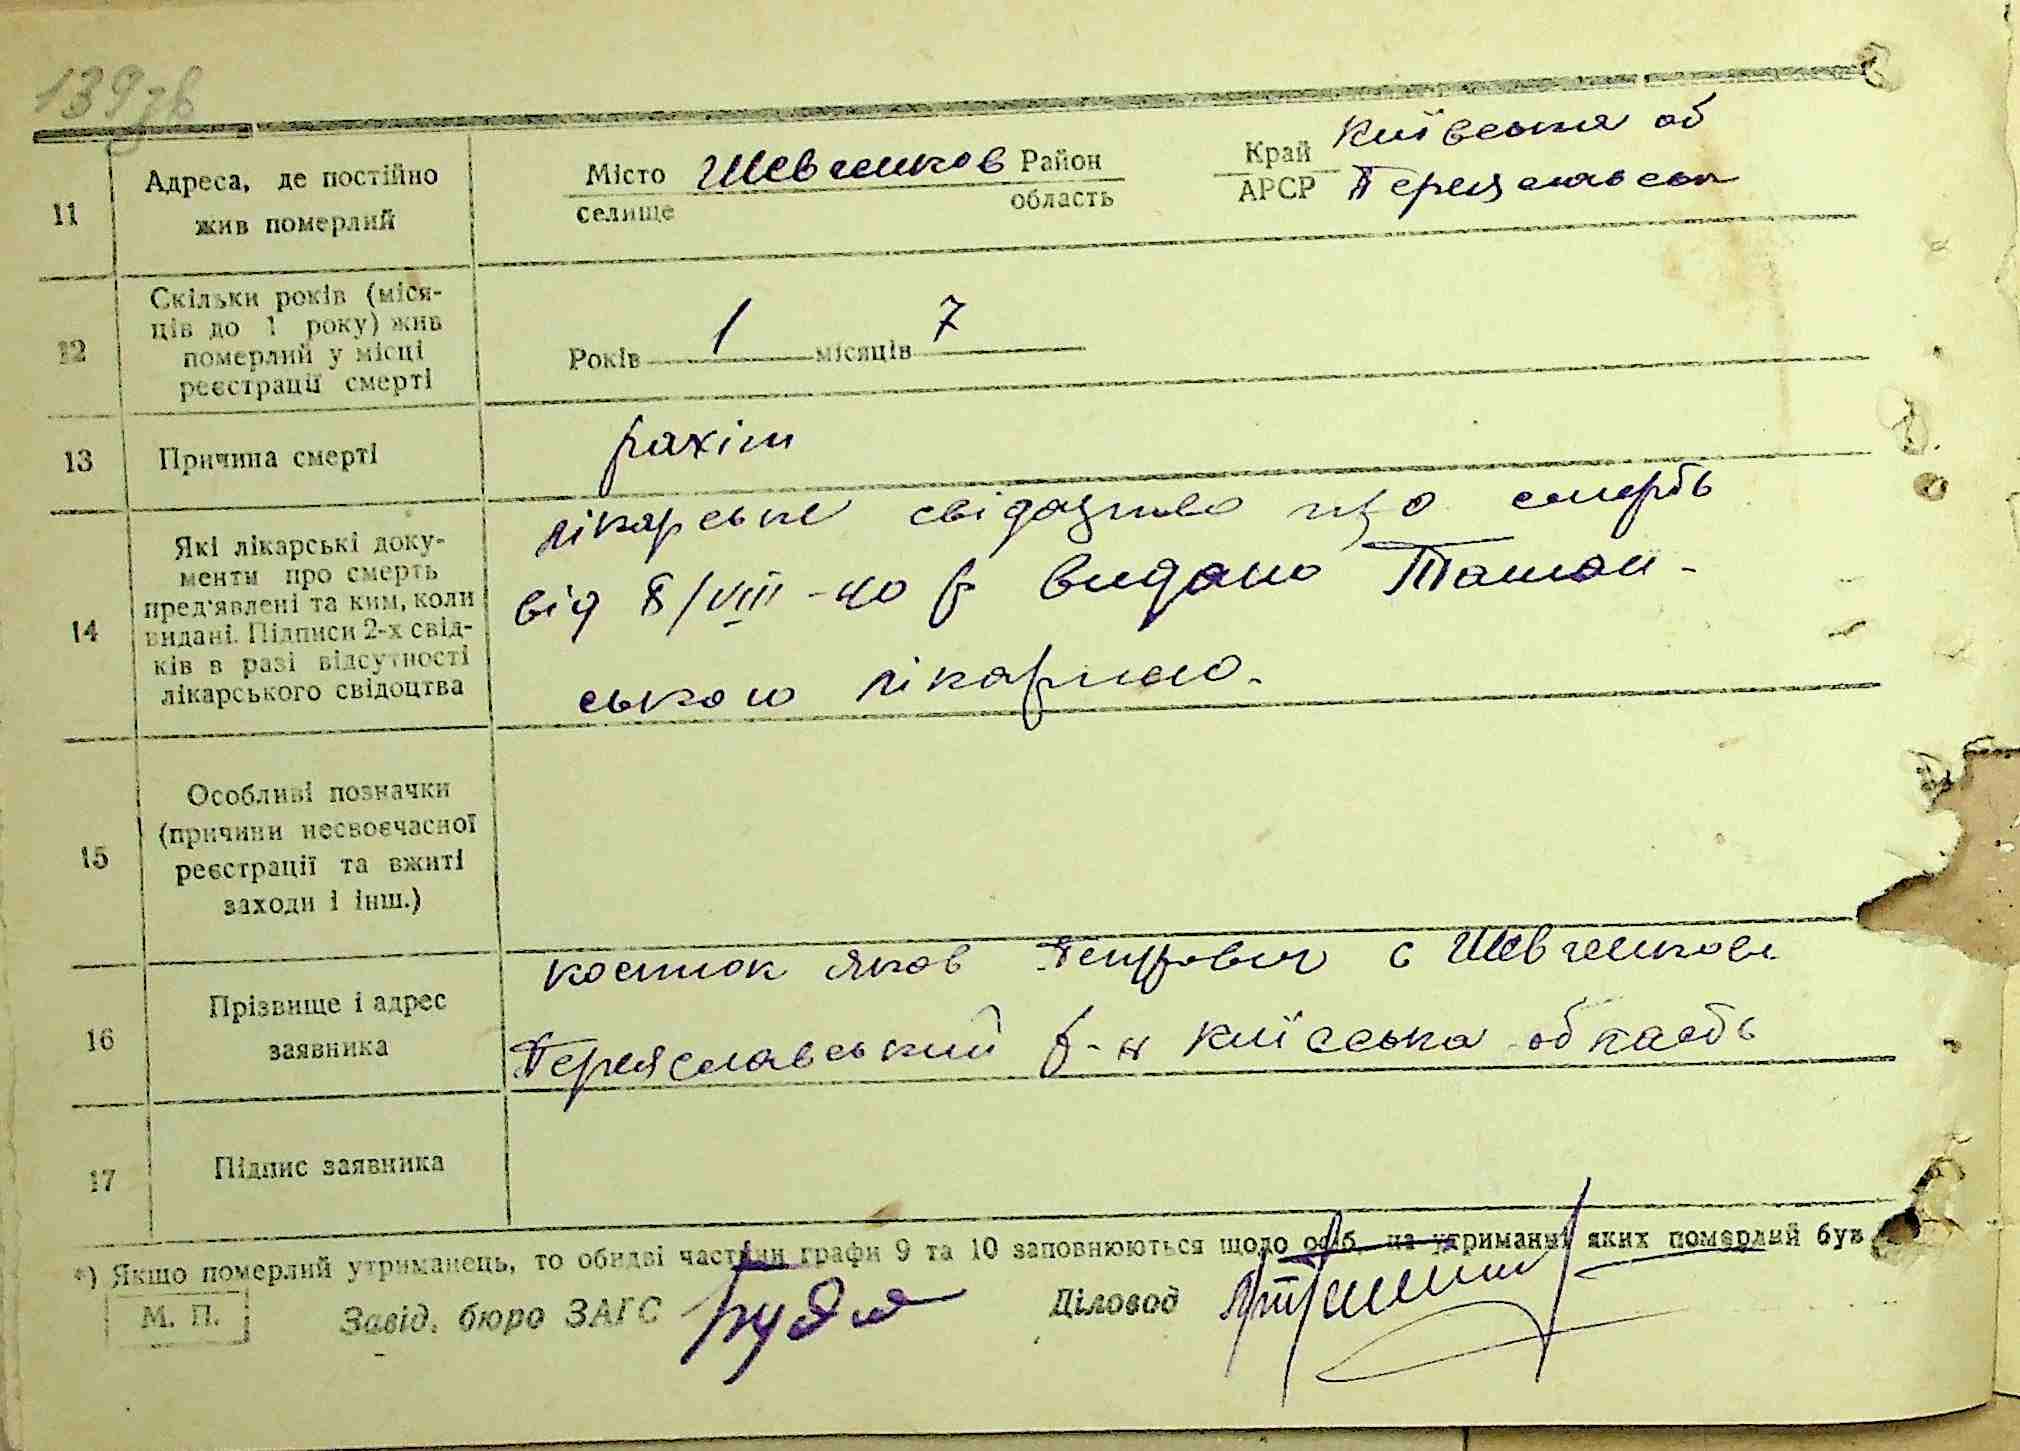 139зв
11
Адреса, де постійно
жив померлий
Місто Шевченков Район
селище область
Край Київська об
АРСР Переяславськ
12
Скільки років (міся-
ців до 1 року) жив
померлий у місці
реєстрації смерті
Років 1 місяців 7
13
Причина смерті
рахіт
14
Які лікарські доку-
менти про смерть
пред'явлені та ким, коли
видані. Підписи 2-х свід-
ків в разі відсутності
лікарського свідоцтва
лікарське свідоцтво про смерть
від 8/VIII-40 р видано Ташан-
ською лікарнею.
15
Особливі позначки
(причини несвоєчасної
реєстрації та вжиті
заходи і інш.)
16
Прізвище і адрес
заявника
Костюк Яков Петрович с Шевченкове
Переяславський р-н Київська область
17
Підпис заявника
*) Якщо померлий утриманець, то обидві частини графи 9 та 10 заповнюються щодо осіб, на утриманні яких померлий був
М. П. Завід. бюро ЗАГС Діловод